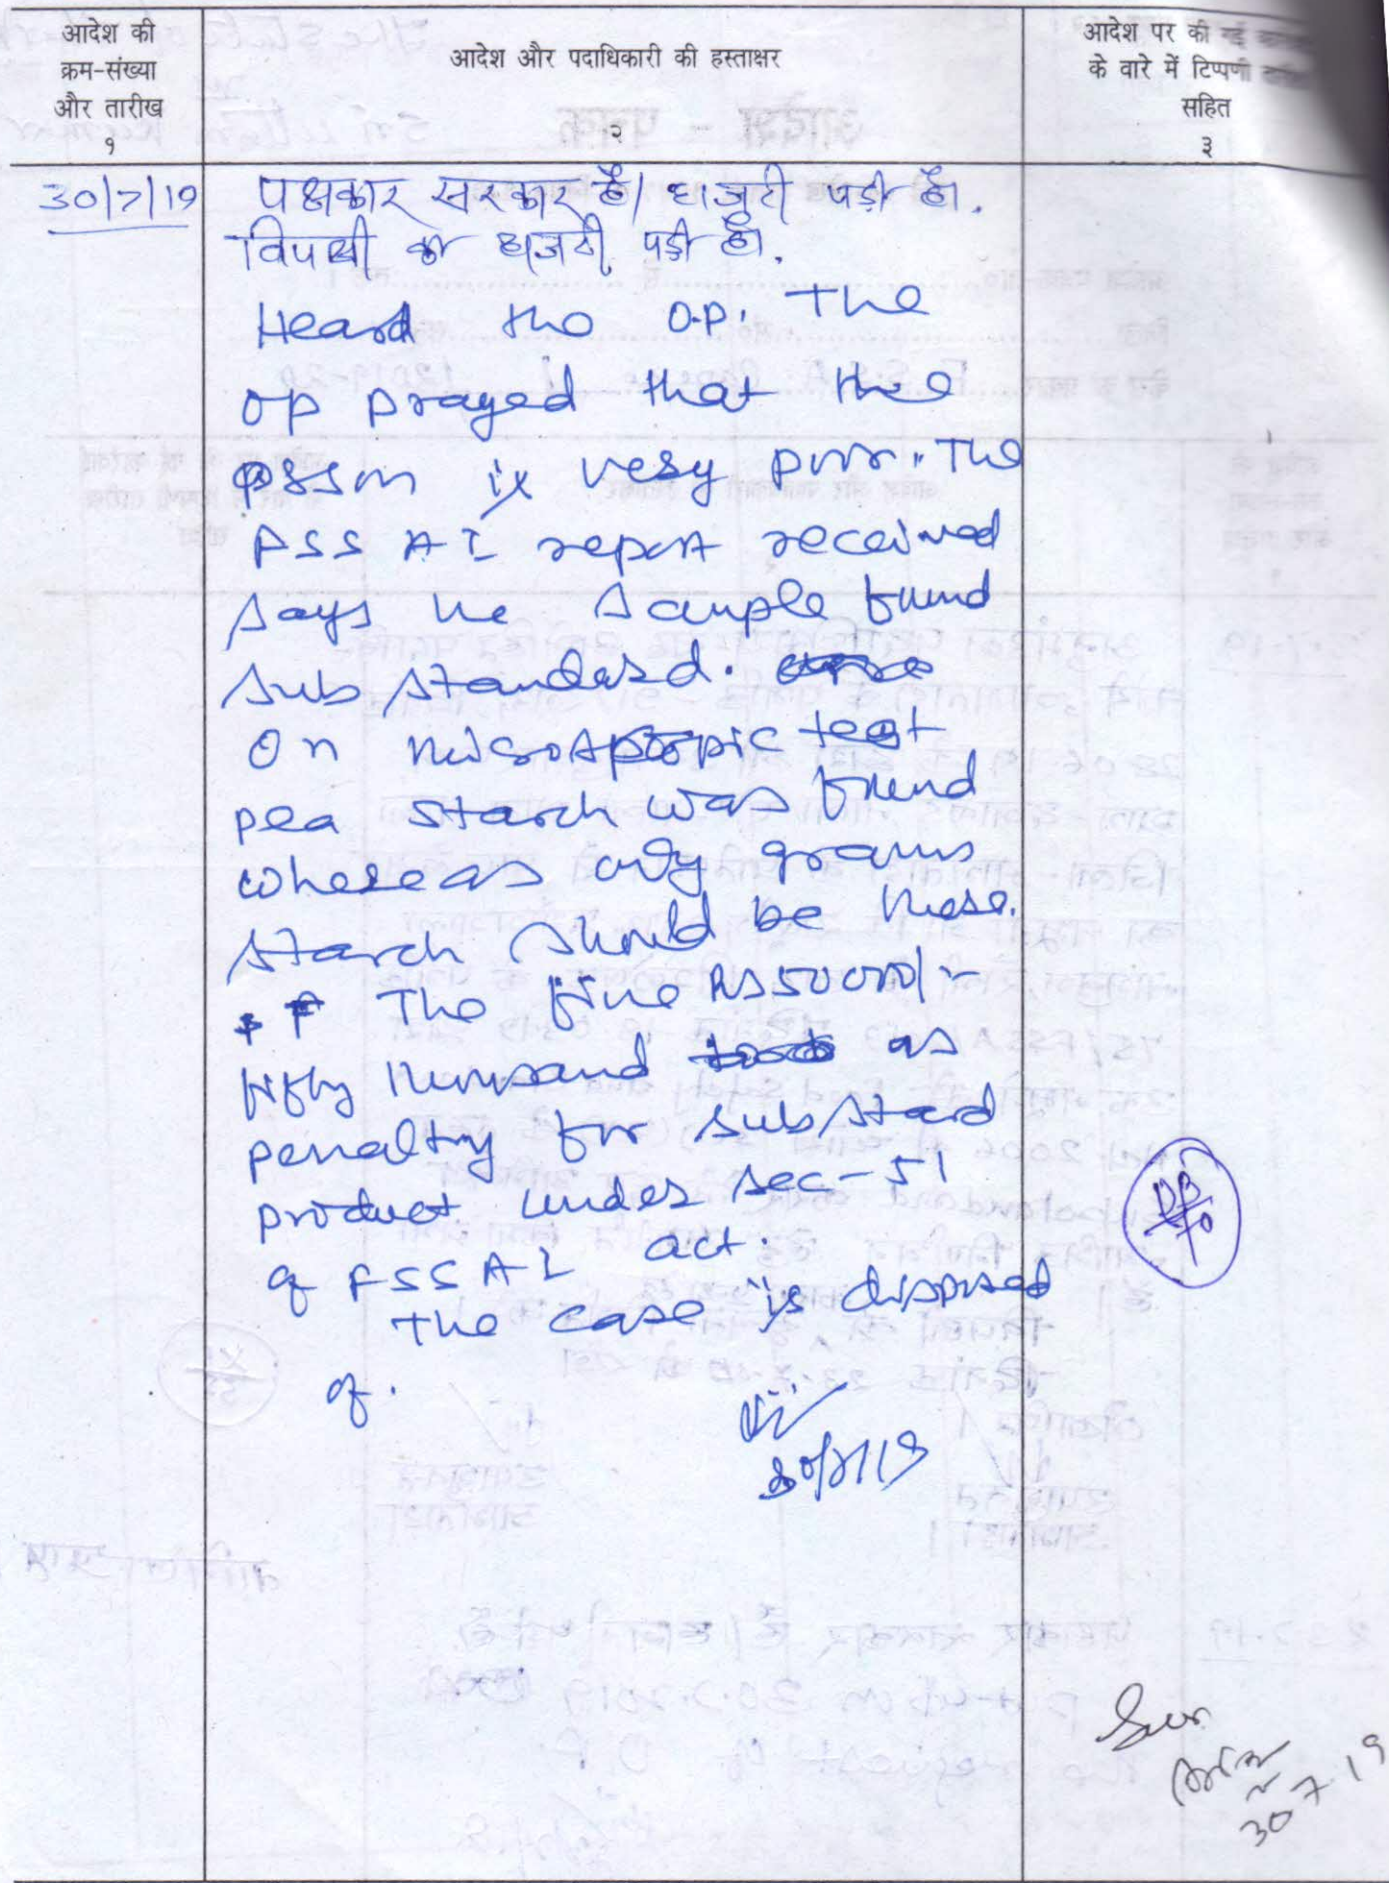 आदेश की
क्रम-संख्या
और तारीख
१
आदेश और पदाधिकारी की हस्ताक्षर
२
आदेश पर की गई
के वारे में टिप्पणी
सहित
३
30/7/19
पक्षकार सरकार है। हाजरी पड़ी है.
विपक्षी का हाजरी पड़ी है.
Heard the O.P. The
OP prayed that the
is very poor. The
FSSAI report received
says the sample found
sub standard.
On microscopic test
pea starch was found
whereas only grams
starch should be there.
The fine Rs 50000/-
fifty thousand as
penalty for substard
product under sec-51
of FSSAI act.
The case is disposed
of.
30/7/19
30.7.19